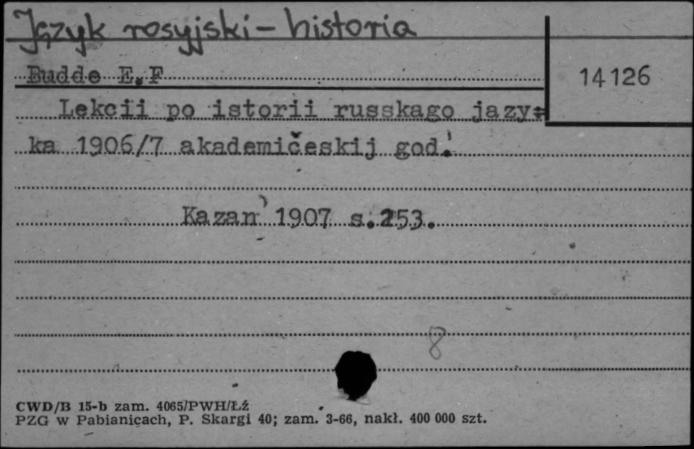 Język rosyjski – historia
Budde E.F
14126
Lekcii po istorii russkago jazy=
ka 1906/7 akademičeskij god.'
Kazan' 1907 s.253.
8
CWD/B 15-b zam. 4065/PWH/Łź
PZG w Pabianicach, P. Skargi 40; zam. 3-66, nakł. 400 000 szt.